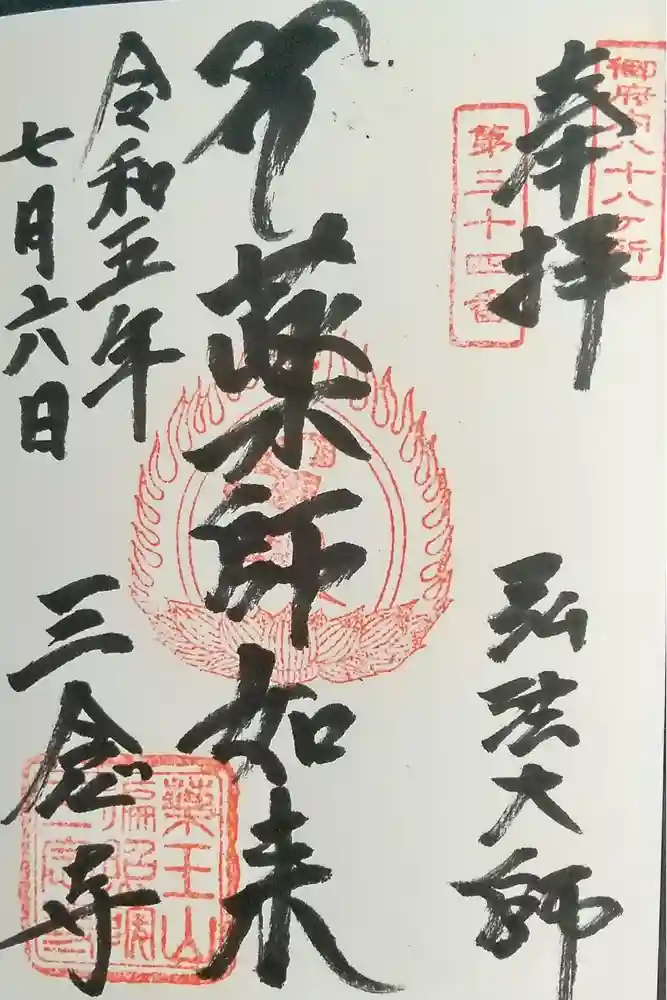 御府内八十八ヶ所
第三十四番
奉拝
弘法大師
薬師如来
令和五年
七月六日
三念寺
薬王山
遍照院
三念寺